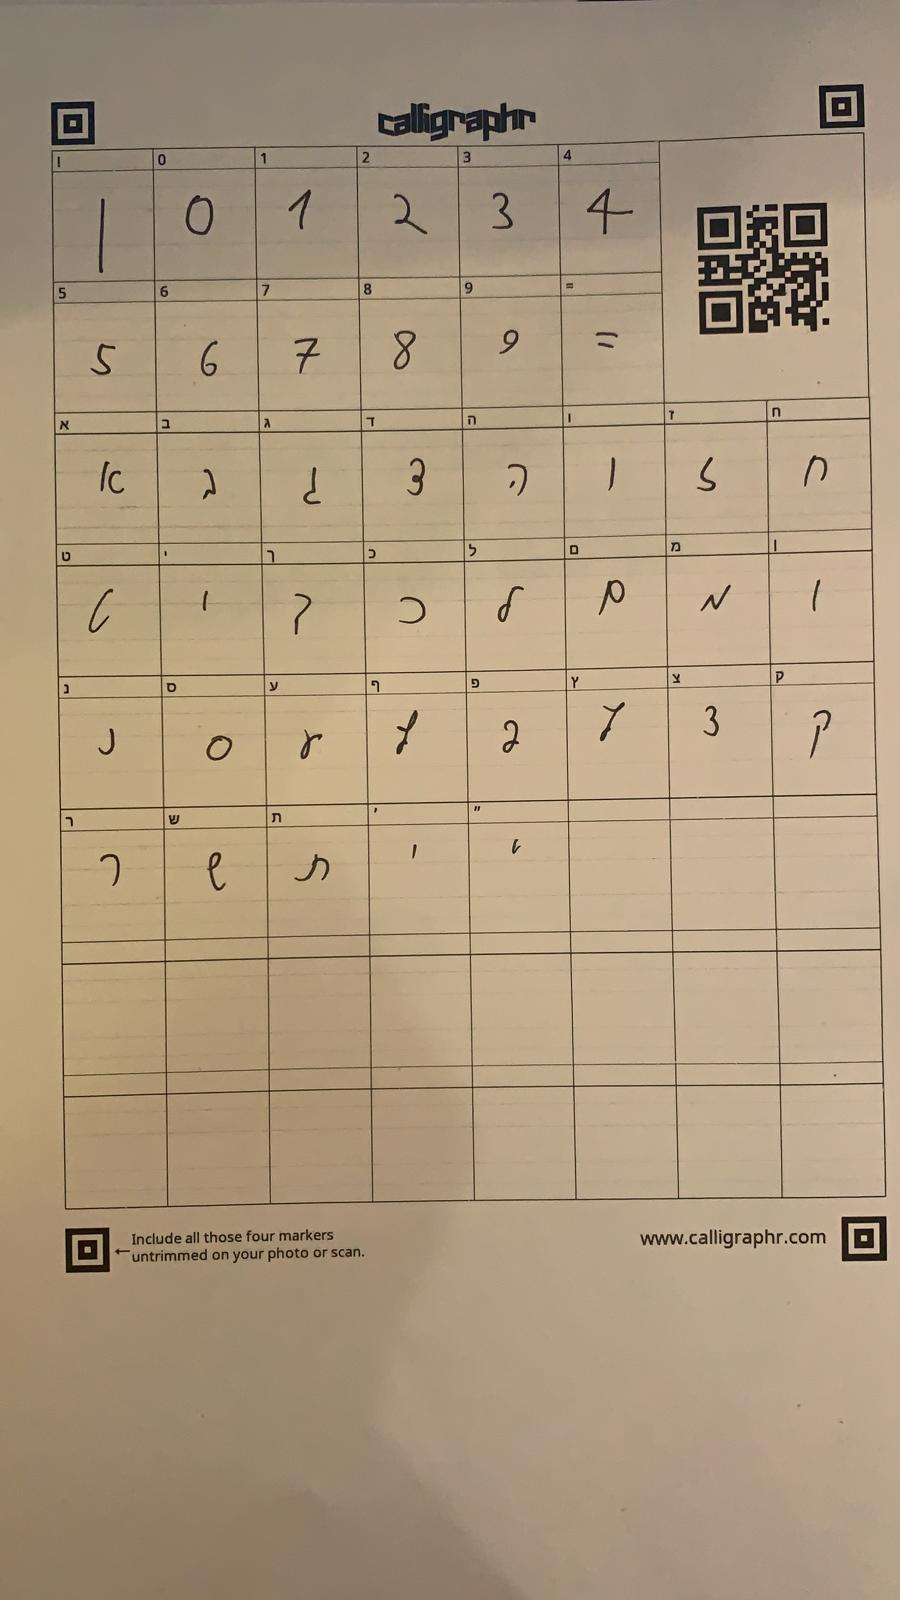 calligraphr
! 0 1 2 3 4
| 0 1 2 3 4
5 6 7 8 9 =
5 6 7 8 9 =
א ב ג ד ה ו ז ח
א ב ג ד ה ו ז ח
ט י ך כ ל ם מ ן
ט י ך כ ל ם מ ן
נ ס ע ף פ ץ צ ק
נ ס ע ף פ ץ צ ק
ר ש ת ׳ ״
ר ש ת ׳ ״
Include all those four markers
←untrimmed on your photo or scan.
www.calligraphr.com